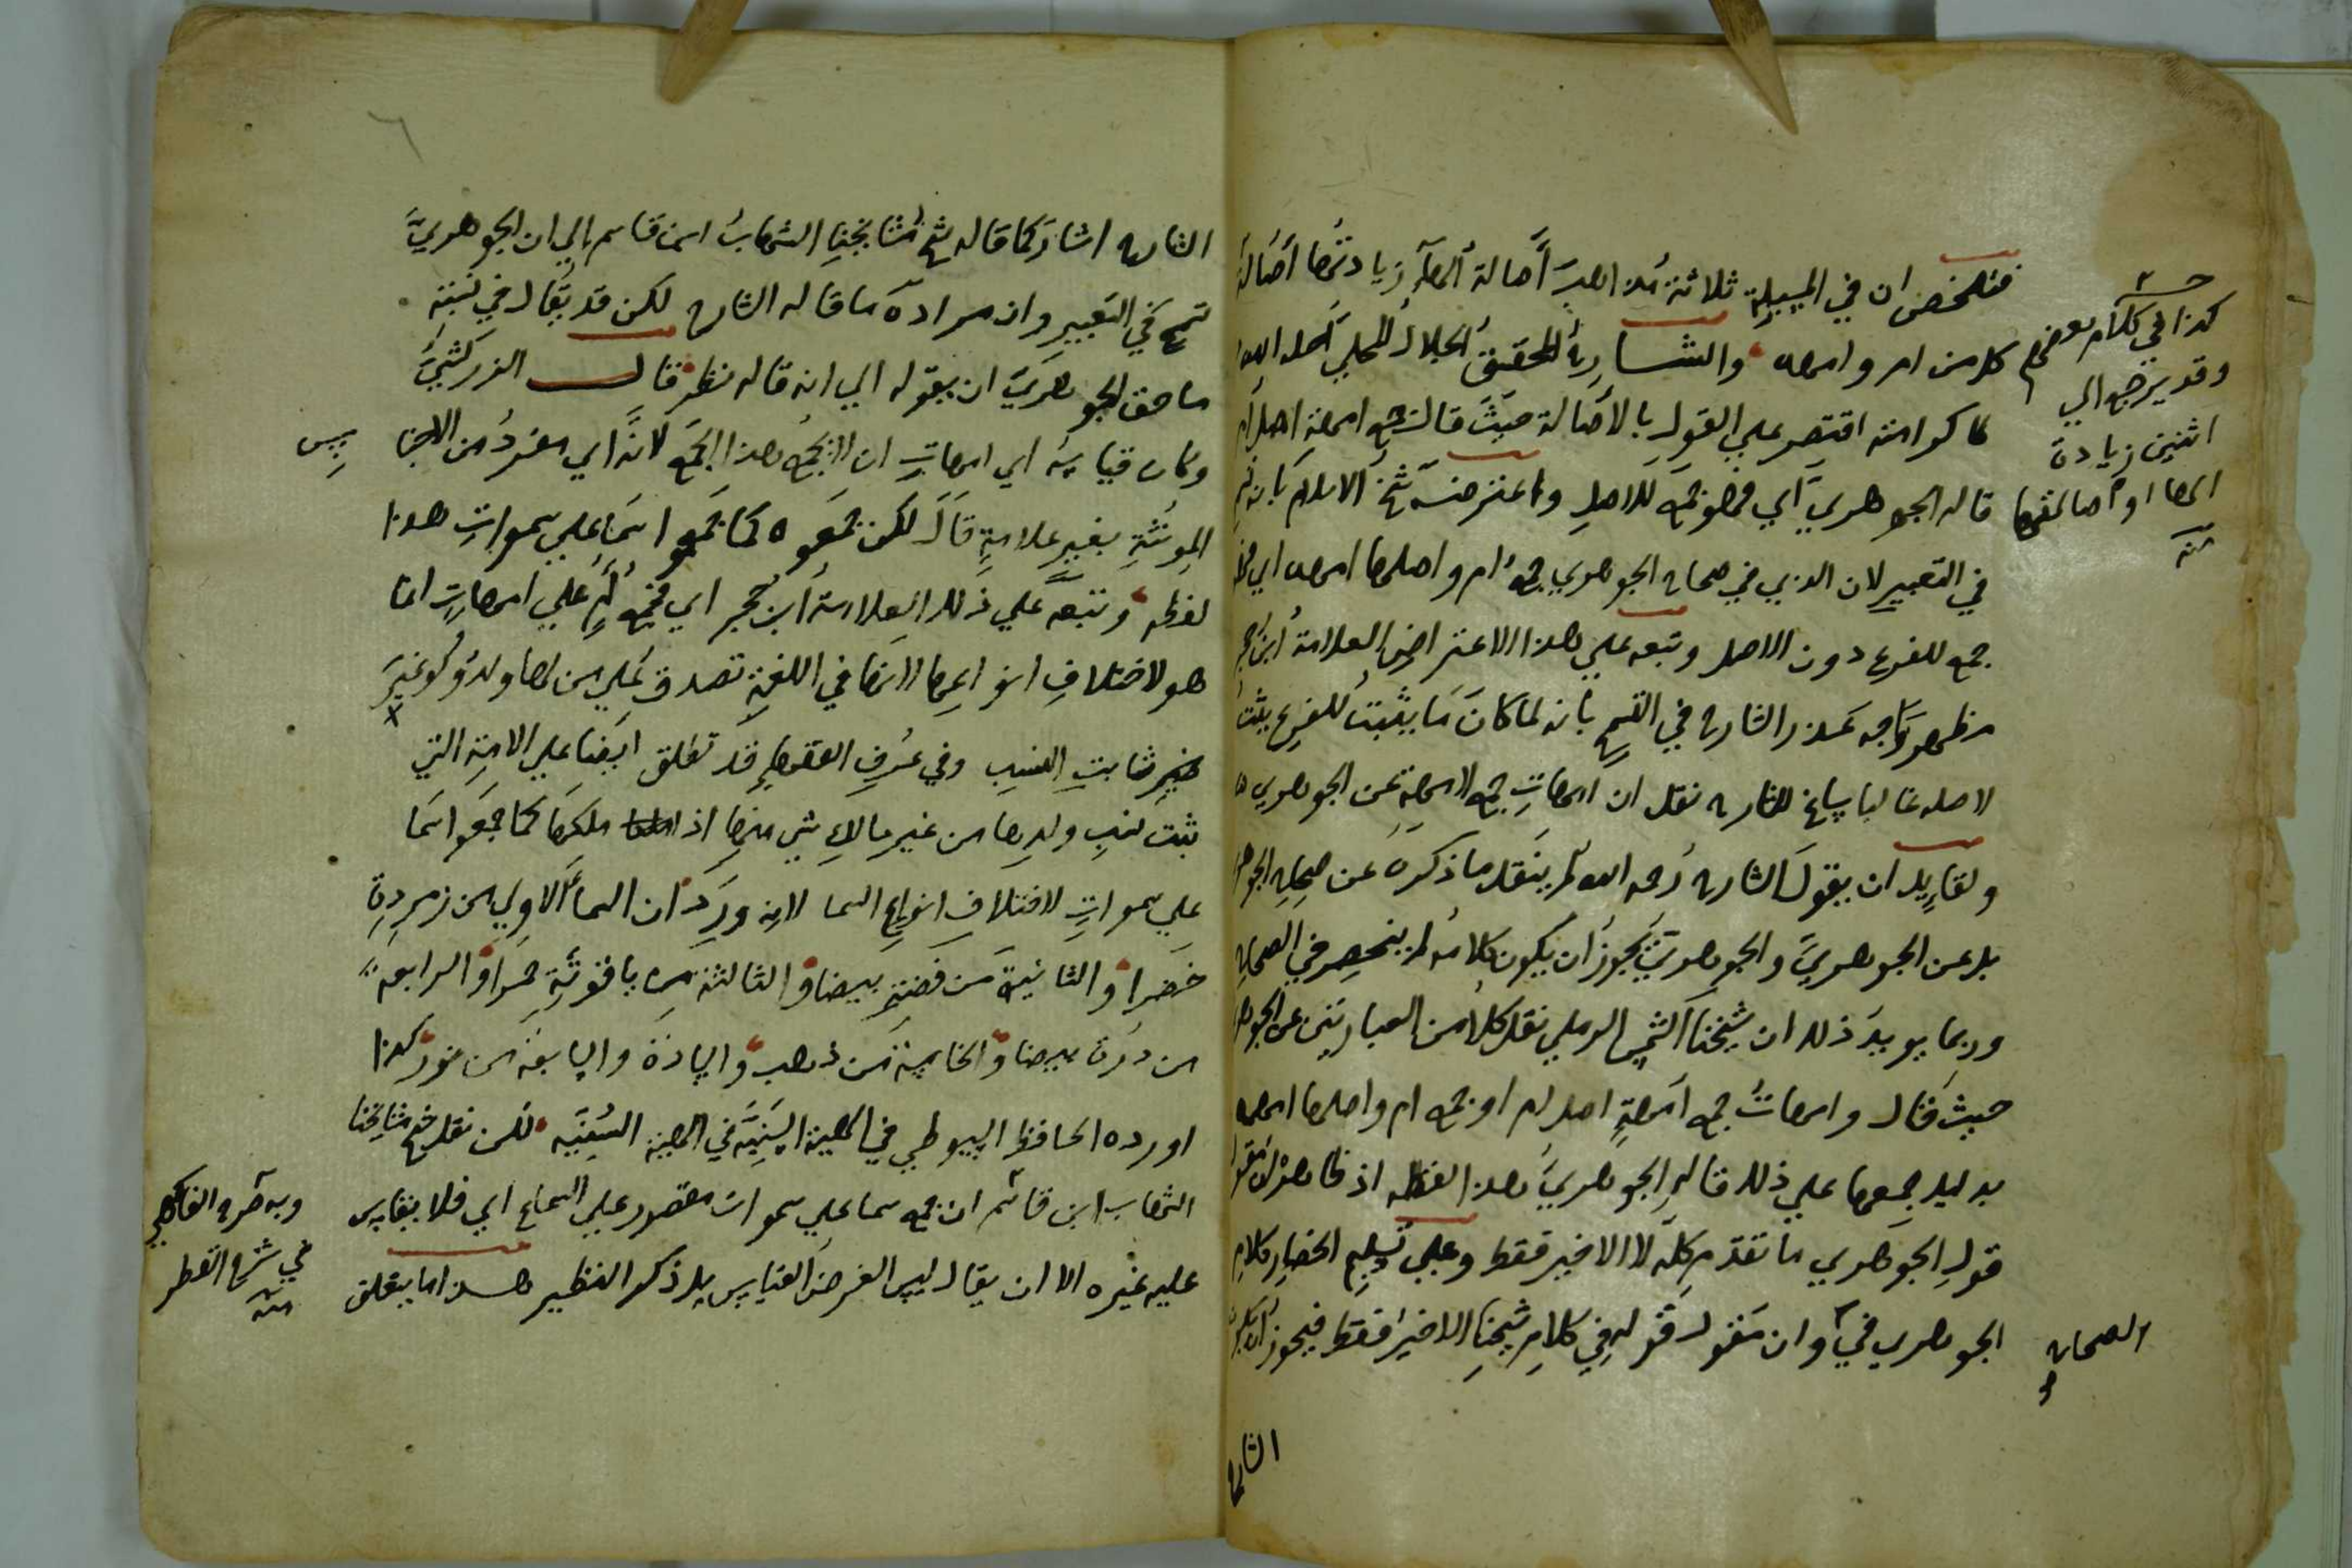 فتلخص ان في المسيلة ثلاثة مذاهب أصالة الهآء زيادتها اصالة
كل من ام وامهه والشارح المحقق الجلال المحلي احله الله
دار كرامته اقتصر علي القول بالاصالة حيث قال جمع امهة اصل ام
قاله الجوهري اي فهو جمع للاصل واعترضه شخ الاسلام بانه
في التعبير لان الذي في صحاح الجوهري جمع ام واصلها امهه اي
جمع للفرع دون الاصل وتبعه علي هذا الاعتراض العلامة ابن حجر
عذر الشارح في بانه لما كان ما يثبت للفرع يثبت
لاصله غالبا ساغ للشارح نقل ان امهات جمع لامهة عن الجوهري
ولقايل ان يقول الشارح رحمه الله لم ينقل ما ذكره عن صحاح الجوهري
بل عن الجوهري والجوهري يجوز ان يكون كلامه لم ينحصر في الصحاح
وربما يويد ذلك ان شيخنا الشمس الرملي نقل كلا من العبارتين عن الجوهري
حيث قال وامهات جمع امهة اصل ام او جمع ام واصلها امهه
بدليل جمعها علي ذلك قاله الجوهري هذا لفظه اذ ظاهره ان مقول
قول الجوهري ما تقدم كله لا الاخير فقط وعلي تسليم انحصار كلام
الجوهري في وان مقول قوله في كلام شيخنا الاخير فقط فيجوز ان يكون
الشارح
كذا في كلام بعضهم
وقد يرجع الي
اثنين زيادة
الها او اصالتها
منه
الصحاح
الشارح اشار كما قاله شخ مشايخنا الشهاب ابن قاسم الي ان الجوهري
تسمح في التعبير وان مراده ما قاله الشارح لكن قد يقال في نسبة
ما حق الجوهري ان يقوله الي انه قاله نظر قال الزركشي
وكان قياسه اي امهات ان لا يجمع هذا الجمع لانه اي مفرده من الاجناس
المونثة بغير علامة قال لكن جمعوه كما جمعوا سما علي سموات هذا
لفظه وتبعه علي ذلك العلامة ابن حجر اي فجمع ام علي امهات انما
هو لاختلاف انواعها لانها في اللغة تصدق علي من لها ولد ولو غير
ثابت النسب وفي عرف الفقها قد تطلق ايضا علي الامة التي
ثبت نسب ولدها من غير مالك شي منها اذا ملكها كما جمعوا سما
علي سموات لاختلاف انواع السما لانه ورد ان السما الاولي من زمردة
خضرا والثانية من فضة بيضا والثالثة من ياقوتة حمرا والرابعة
من درة بيضا والخامسة من ذهب والسادسة والسابعة من نور كذا
اورده الحافظ السيوطي في الهيئة السنية في الهيئة السنية لكن نقل شخ مشايخنا
الشهاب ابن قاسم ان جمع سما علي سموات مقصور علي السماع اي فلا يقاس
عليه غيره الا ان يقال ليس الغرض القياس بل ذكر النظير هذا ما يتعلق
وبه صرح الفاكهي
في شرح القطر
منه